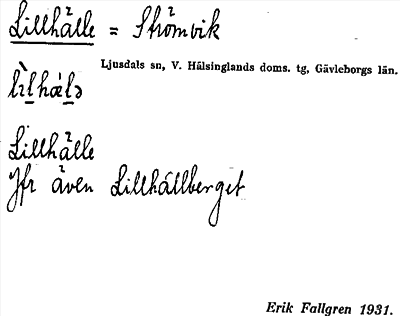 Lillhälle = Strömvik
Ljusdals sn, V. Hälsinglands doms. tg, Gävleborgs län.
Lillhälle
Jfr även Lillhällberget
Erik Fallgren 1931.